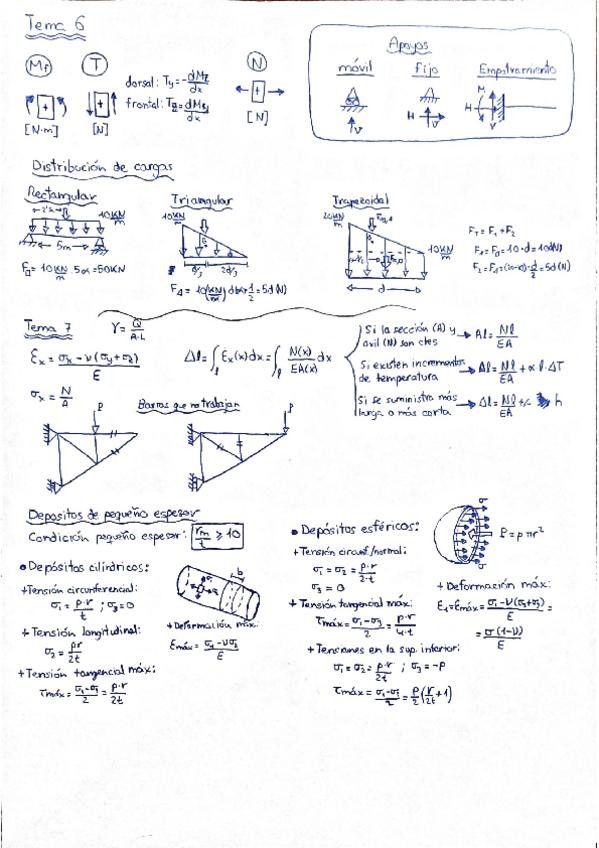 Tema 6
Mf T N
dorsal: Ty = -dMz/dx
frontal: Tz = dMy/dx
[N·m] [N] [N]
Apoyos
móvil fijo Empotramiento
V H V M H V
Distribución de cargas
Rectangular Triangular Trapezoidal
10KN/m
5m
F▯ = 10KN/m · 5m = 50KN
10KN/m
d/3 2d/3
20KN/m
10KN/m
d
F_T = F1 + F2
F1 = F▯ = 10·d = 10d(N)
F2 = F△ = (20-10)·d/2 = 5d(N)
Tema 7 γ = Q/A·L
εx = σx - ν(σy+σz)/E
σx = N/A
Δl = ∫l εx(x)dx = ∫l N(x)/EA(x) dx
Si la sección (A) y
axil (N) son ctes → Δl = Nl/EA
Si existen incrementos
de temperatura → Δl = Nl/EA + α l·ΔT
Si se suministra más
larga o más corta → Δl = Nl/EA
Barras que no trabajan
P P
Depositos de pequeño espesor
Condición pequeño espesor: rm/t ≥ 10
• Depósitos cilíndricos:
+Tensión circunferencial:
σ1 = p·r/t ; σ3 = 0
+Tensión longitudinal:
σ2 = pr/2t
+Tensión tangencial máx:
b
+Deformación máx:
εmáx = σ1 - νσ2/E
• Depósitos esféricos:
+Tensión circunf./normal:
σ1 = σ2 = p·r/2·t
σ3 = 0
+Tensión tangencial máx:
τmáx = σ1-σ3/2 = p·r/4·t
+Tensiones en la sup. interior:
σ1 = σ2 = p·r/2t ; σ3 = -p
τmáx = σ1-σ3/2 = p/2(r/2t+1)
P = pπr²
+Deformación máx:
ε1 = εmáx = σ1-ν(σ2+σ3)/E =
= σ(1-ν)/E